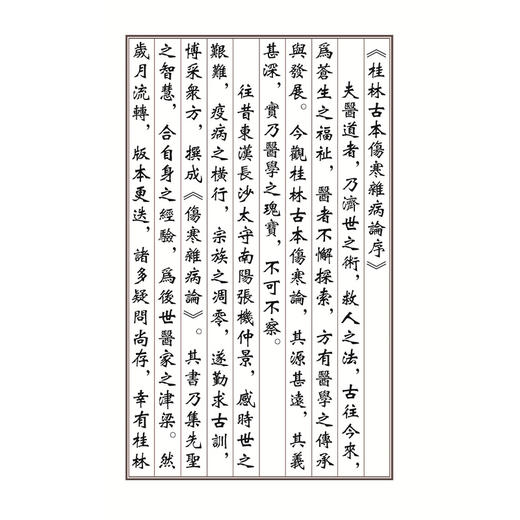 《桂林古本傷寒雜病論序》
夫醫道者，乃濟世之術，救人之法，古往今來，
爲蒼生之福祉，醫者不懈探索，方有醫學之傳承
與發展。今觀桂林古本傷寒論，其源甚遠，其義
甚深，實乃醫學之瑰寶，不可不察。
往昔東漢長沙太守南陽張機仲景，感時世之
艱難，疫病之橫行，宗族之凋零，遂勤求古訓，
博采衆方，撰成《傷寒雜病論》。其書乃集先聖
之智慧，合自身之經驗，爲後世醫家之津梁。然
歲月流轉，版本更迭，諸多疑問尚存，幸有桂林